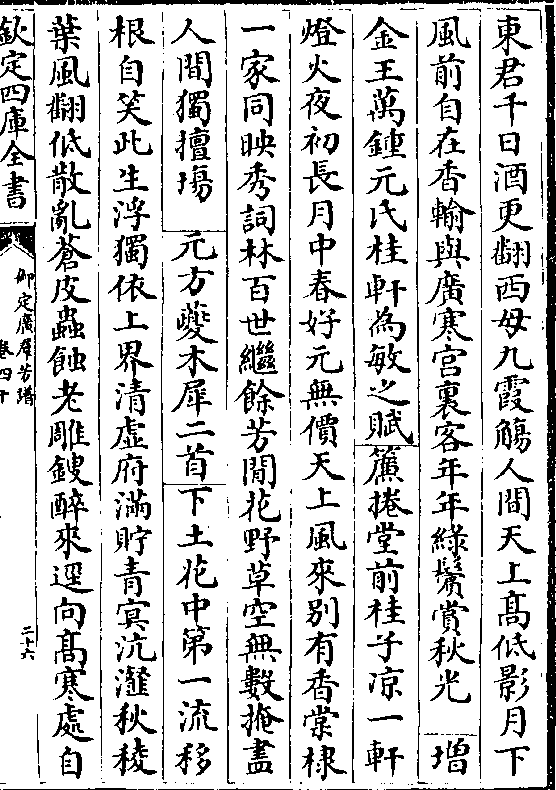 東君千日酒更翻西母九霞觴人間天上髙低影月下
風前自在香輸與廣寒宫裏客年年綠鬢賞秋光　増
金王萬鍾元氏桂軒為敏之賦簾捲堂前桂子凉一軒
燈火夜初長月中春好元無價天上風來别有香棠棣
一家同映秀詞林百世繼餘芳閒花野草空無數掩盡
人間獨擅塲　元方夔木犀二首下土花中第一流移
根自笑此生浮獨依上界清虚府滿貯青冥沆瀣秋稜
葉風翻低散亂蒼皮蟲蝕老雕鎪醉來逕向髙寒處自
欽定四庫全書
御定廣羣芳譜
卷四十
二十六